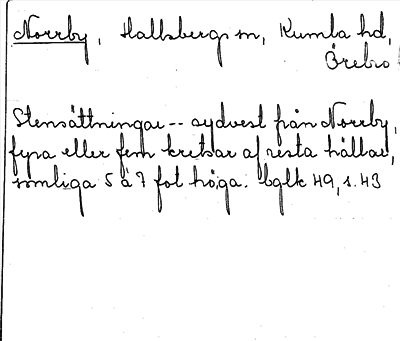 Norrby, Hallsbergs sn, Kumla hd,
Örebro
Stensättningar -- sydvest från Norrby,
fyra eller fem kretsar af resta hällar,
somliga 5 à 7 fot höga. bglk 49, s. 43